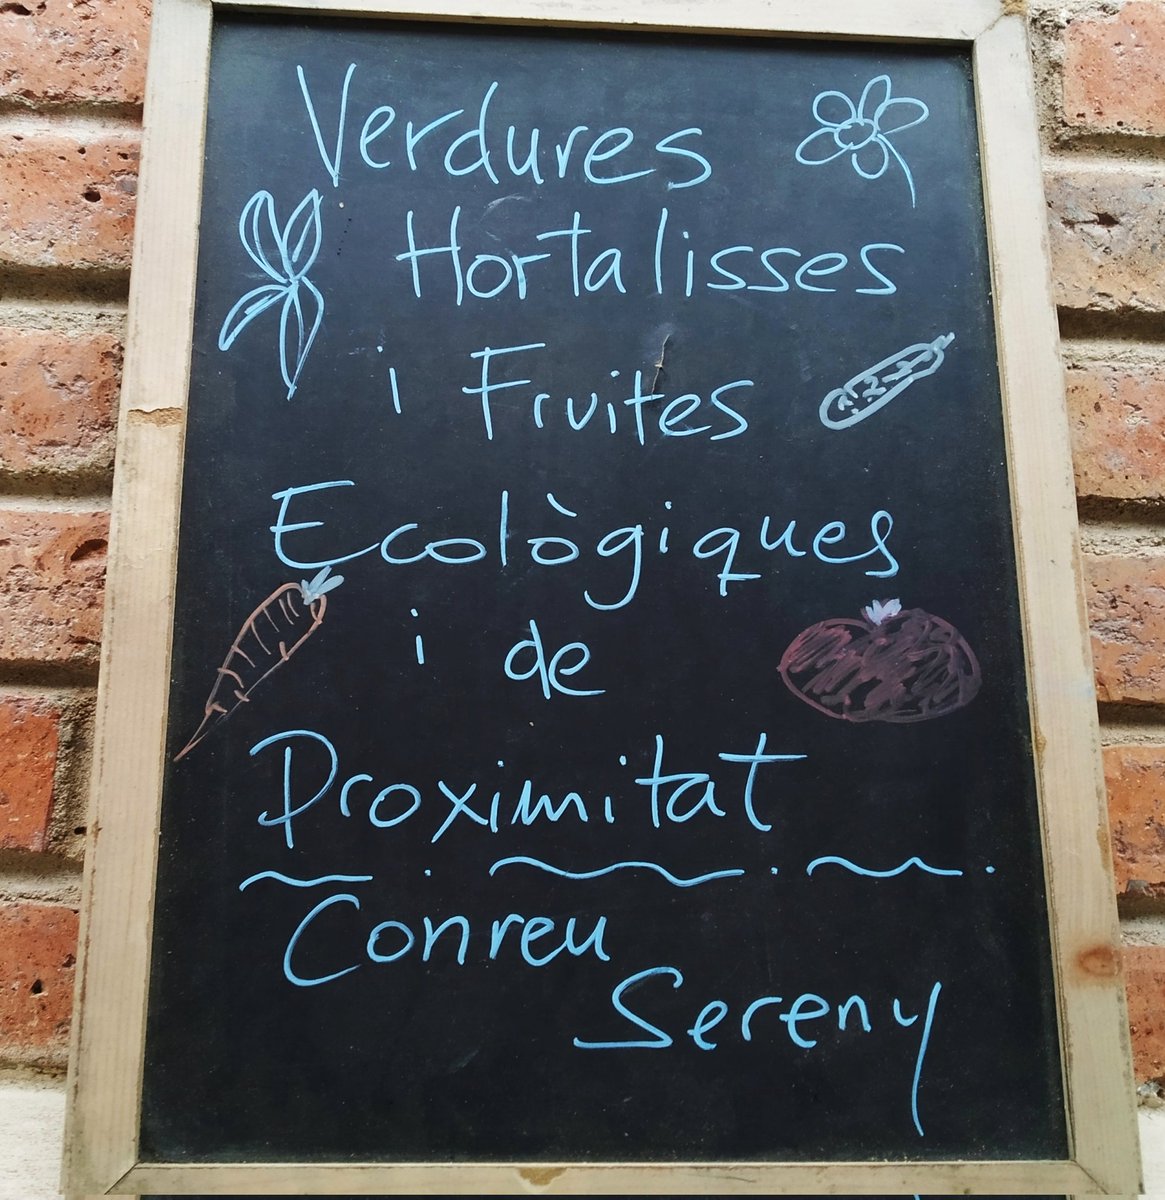 Verdures
Hortalisses
i Fruites
Ecològiques
i de
Proximitat
Conreu
Sereny